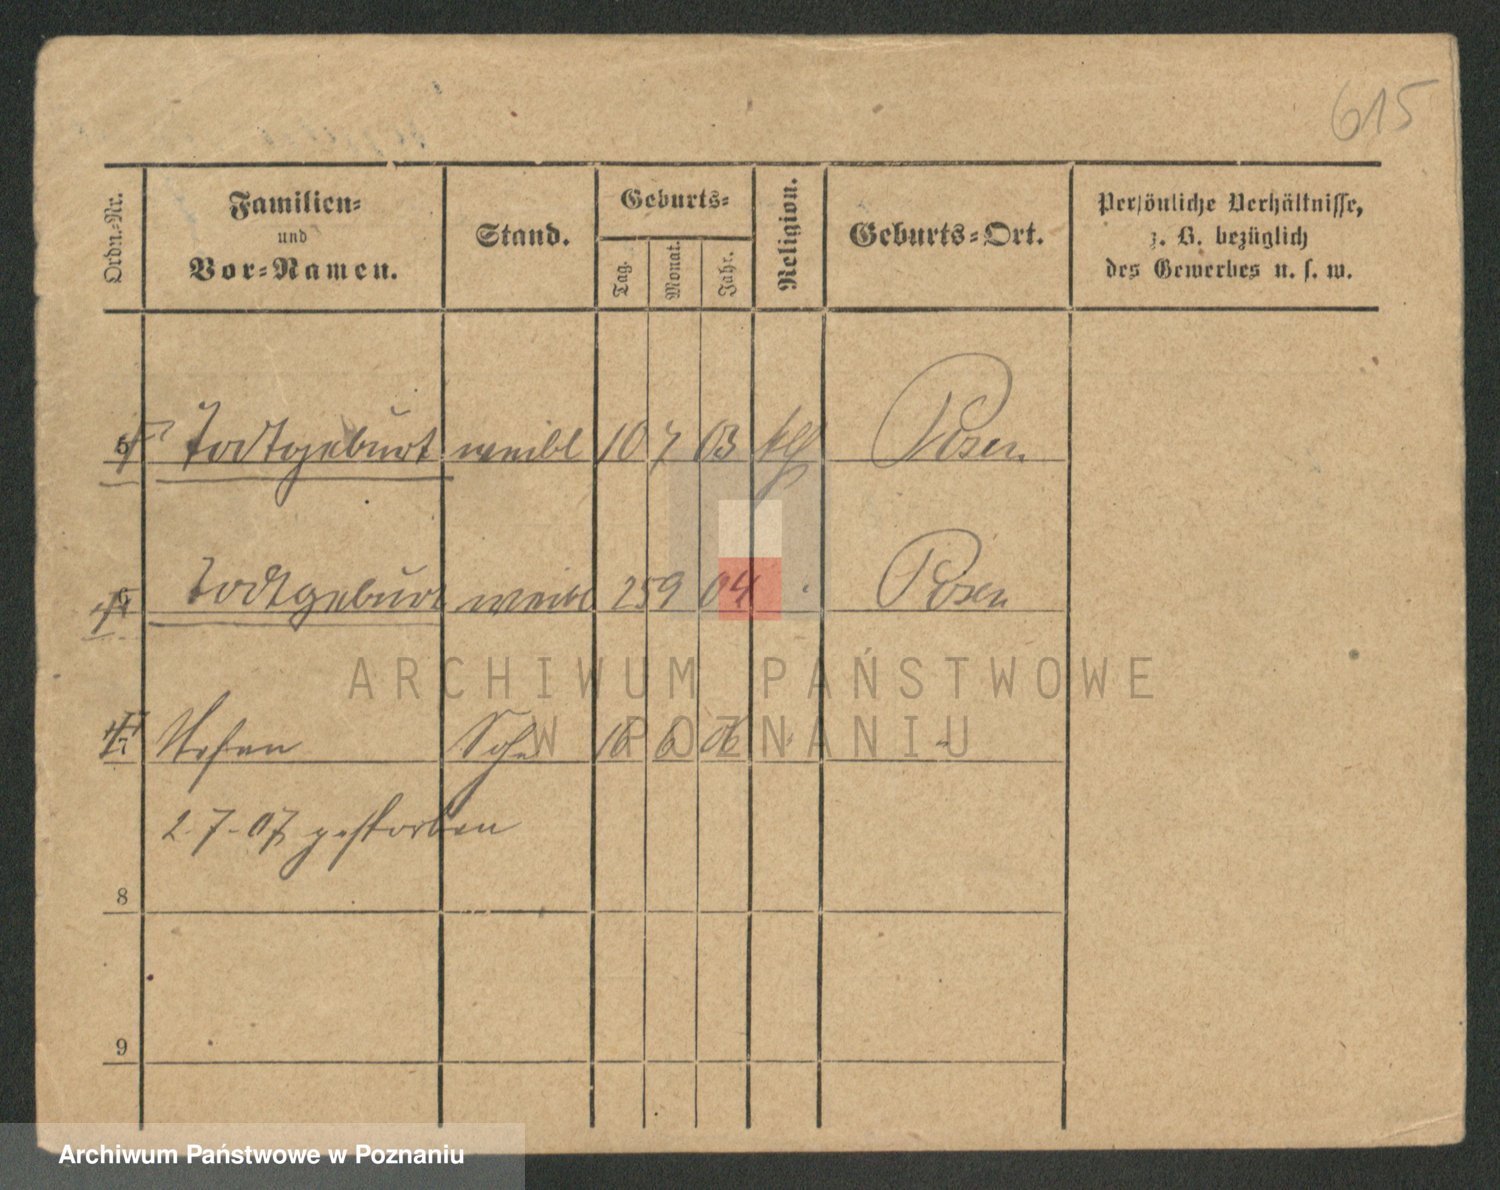 615
Ordn.-Nr.
Familien-
und
Vor-Namen.
Stand.
Geburts-
Tag.
Monat.
Jahr.
Religion.
Geburts-Ort.
Persönliche Verhältnisse,
z. B. bezüglich
des Gewerbes u. s. w.
5 Todtgeburt weibl 10 7 03 Posen
6 Todtgeburt weibl 25 9 04 Posen
ARCHIWUM PAŃSTWOWE
W POZNANIU
7 Sohn 16 6 06
2-7-07 gestorben
8
9
Archiwum Państwowe w Poznaniu